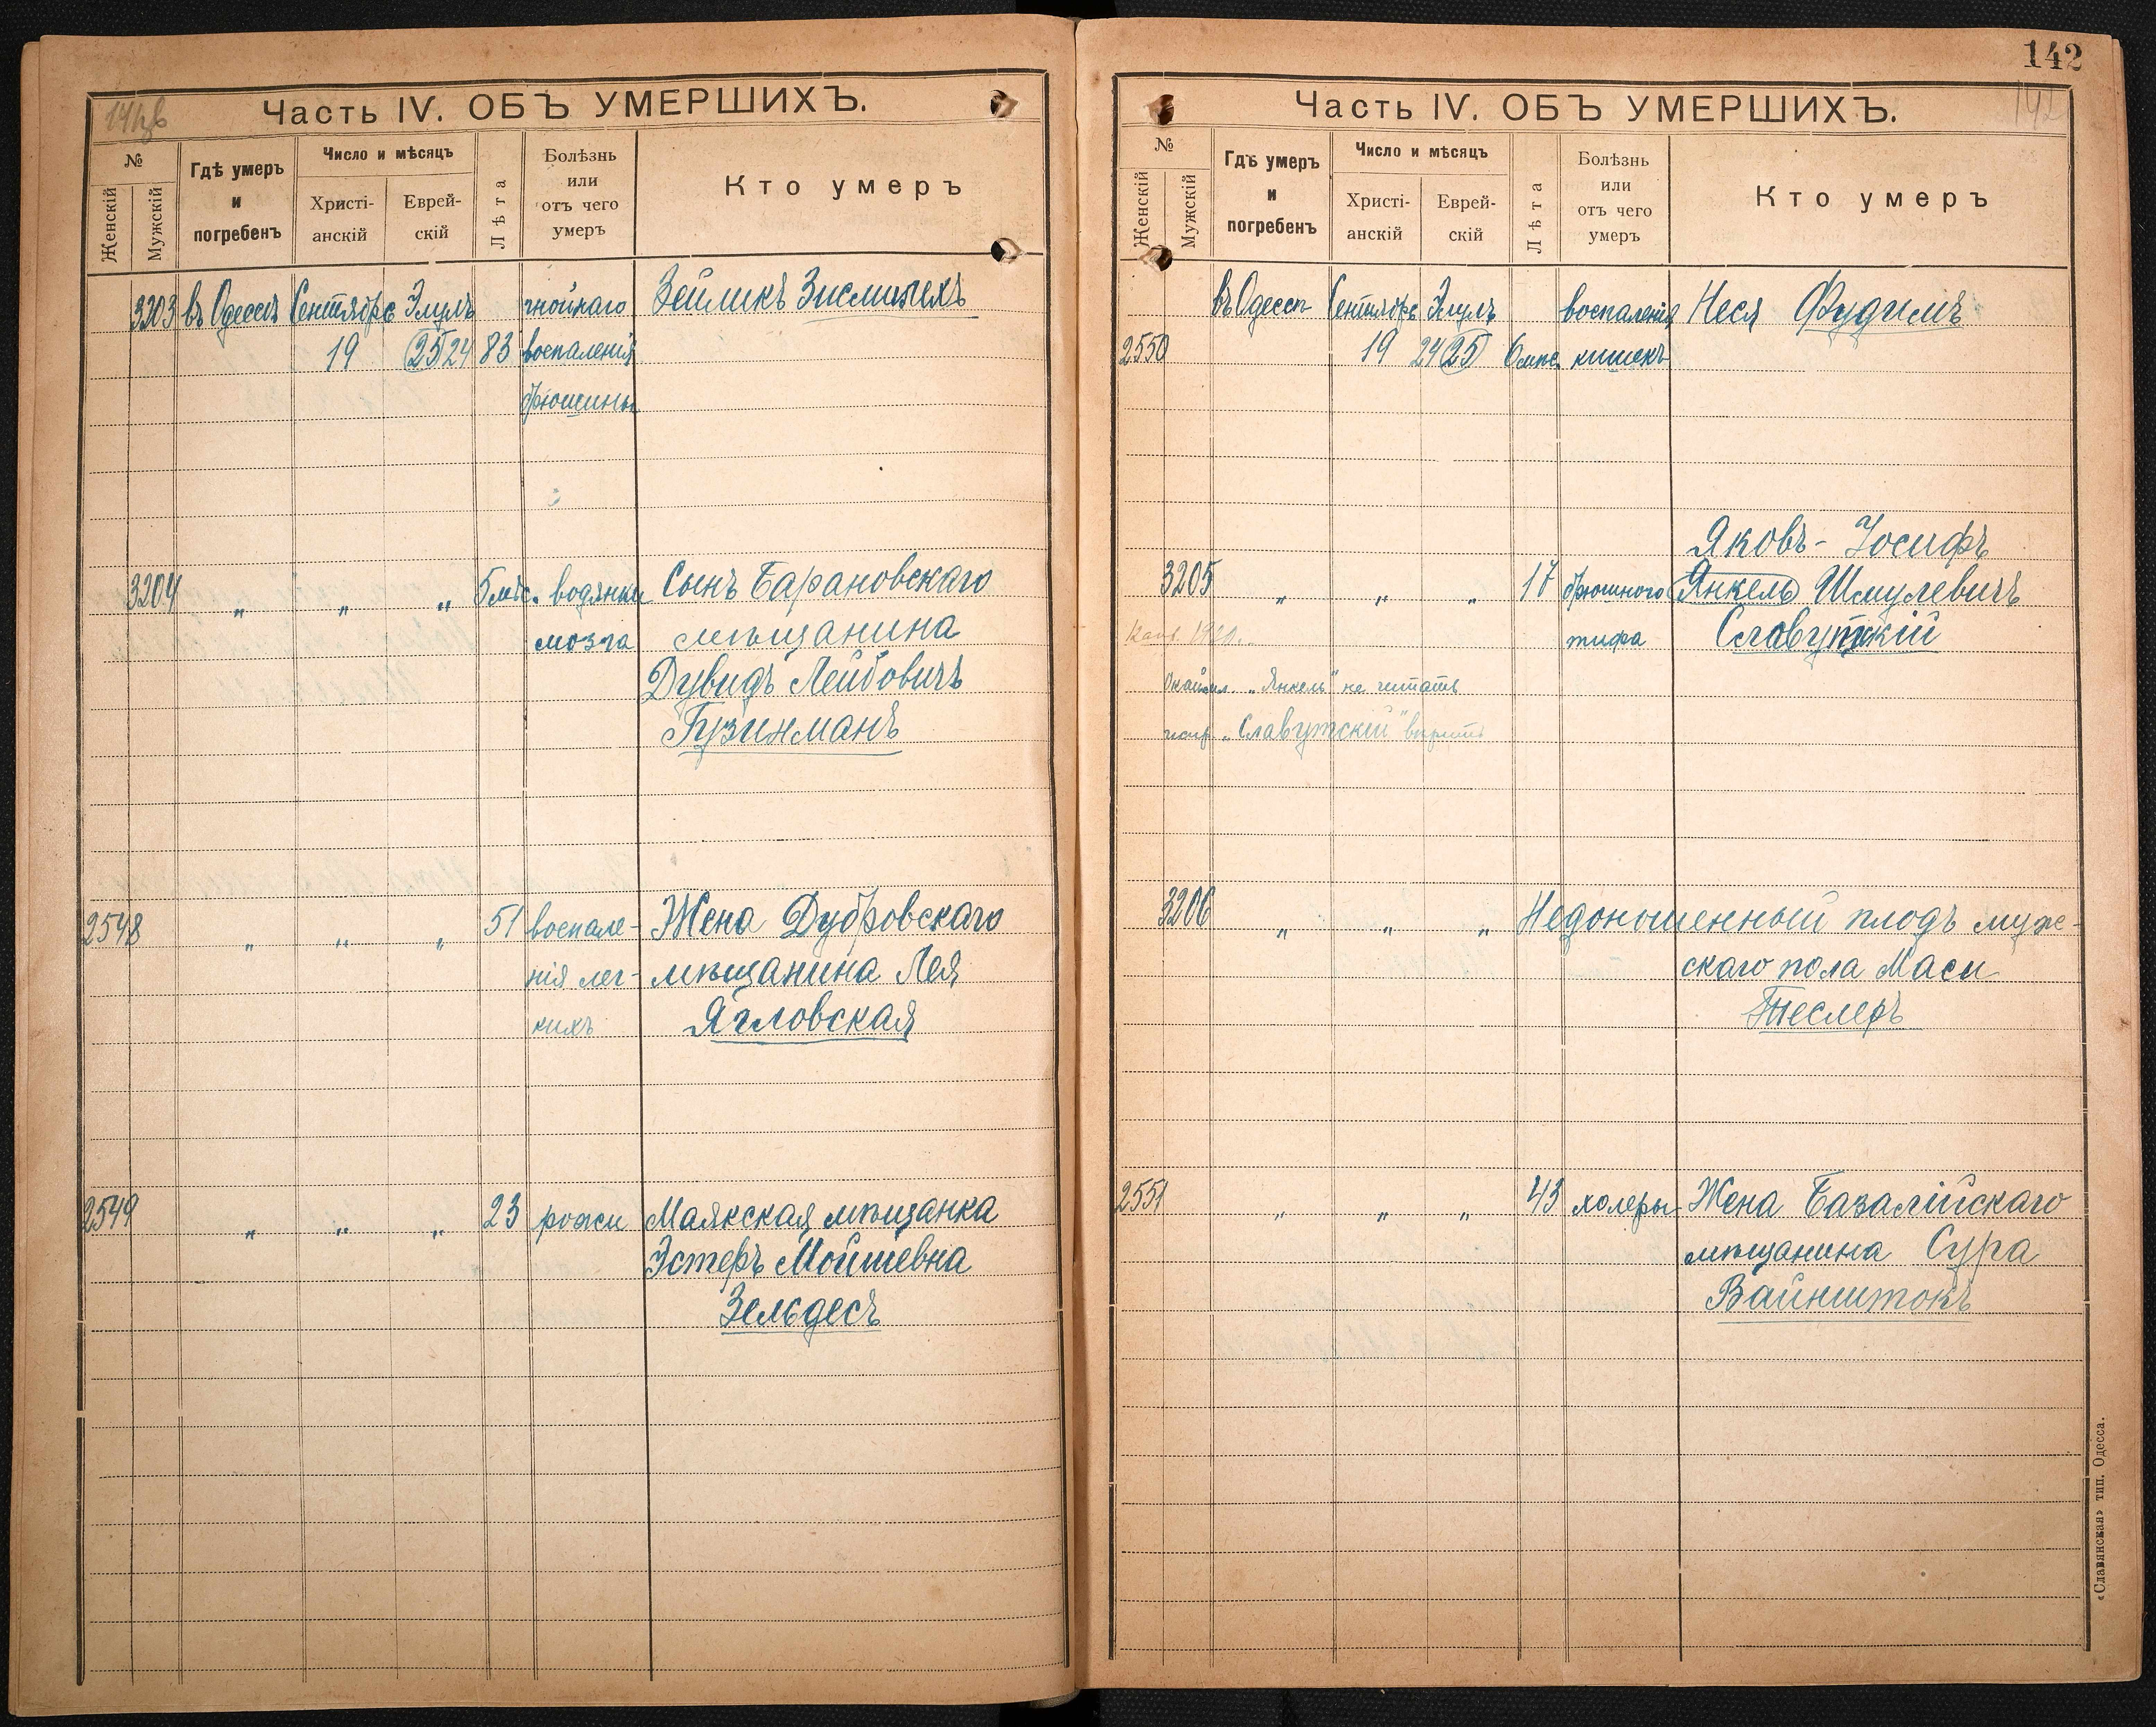 Часть IV. ОБЪ УМЕРШИХЪ.
№
Женскій
Мужскій
Гдѣ умеръ
и
погребенъ
Число и мѣсяцъ
Христі-
анскій
Еврей-
скій
Лѣта
Болѣзнь
или
отъ чего
умеръ
Кто умеръ
3203 въ Одессѣ Сентября Элулъ гнойнаго Зейликъ
19 25 24 83 воспаленія
брюшины
3204 „ „ „ 5 мѣс. водянки Сынъ Барановскаго
мозга мѣщанина
Дувидъ Лейбовичъ
Гузикманъ
2548 „ „ „ 51 воспале- Жена Дубровскаго
нія лег- мѣщанина Лея
кихъ Ягловская
2549 „ „ „ 23 рожи Маякская мѣщанка
Эстеръ Мойшевна
Зельдесъ
142
Часть IV. ОБЪ УМЕРШИХЪ.
142
№
Женскій
Мужскій
Гдѣ умеръ
и
погребенъ
Число и мѣсяцъ
Христі-
анскій
Еврей-
скій
Лѣта
Болѣзнь
или
отъ чего
умеръ
Кто умеръ
въ Одессѣ Сентября Элулъ воспаленія Неся Фудимъ
2550 19 24 25 6 мѣс. кишекъ
Яковъ-Іосифъ
3205 „ „ „ 17 брюшного Янкель Шмулевичъ
тифа Славутскій
„Янкель" не читать
„Славутскій" вѣрить
3206 „ „ „ Недоношенный плодъ муж-
скаго пола Маси
Теслеръ
2551 „ „ „ 43 холеры Жена Базалійскаго
мѣщанина Сура
Вайнштокъ
«Славянская» тип. Одесса.